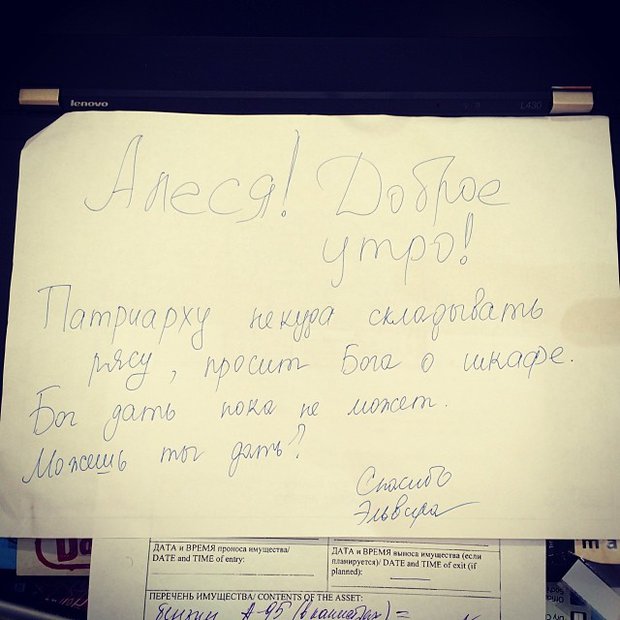 lenovo
L430
Алеся! Доброе
утро!
Патриарху некуда складывать
рясу, просит Бога о шкафе.
Бог дать пока не может.
Можешь ты дать?
Спасибо
Эльвира
ДАТА и ВРЕМЯ проноса имущества/
DATE and TIME of entry:
ДАТА и ВРЕМЯ выноса имущества (если
планируется)/ DATE and TIME of exit (if
planned):
ПЕРЕЧЕНЬ ИМУЩЕСТВА/ CONTENTS OF THE ASSET:
А-95 =